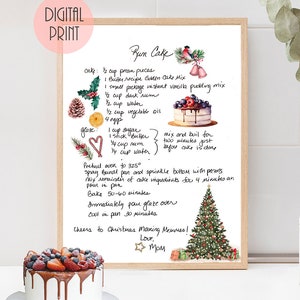 DIGITAL
PRINT
Rum Cake
cake: ½ cup pecan pieces
1 Butter recipe Golden Cake Mix
1 small package instant vanilla pudding mix
½ cup dark rum
½ cup water
½ cup vegetable oil
4 eggs
glaze: 1 cup sugar
1 stick butter
¼ cup rum
¼ cup water
mix and boil for
two minutes just
before cake is done
Preheat oven to 325°
Spray bundt pan and sprinkle bottom with pecans
mix remainder of cake ingredients for 4 minutes on
pour in pan
Bake 50-60 minutes
Immediately pour glaze over
Cool in pan 30 minutes
Cheers to Christmas Making Memories!
Love,
Mom